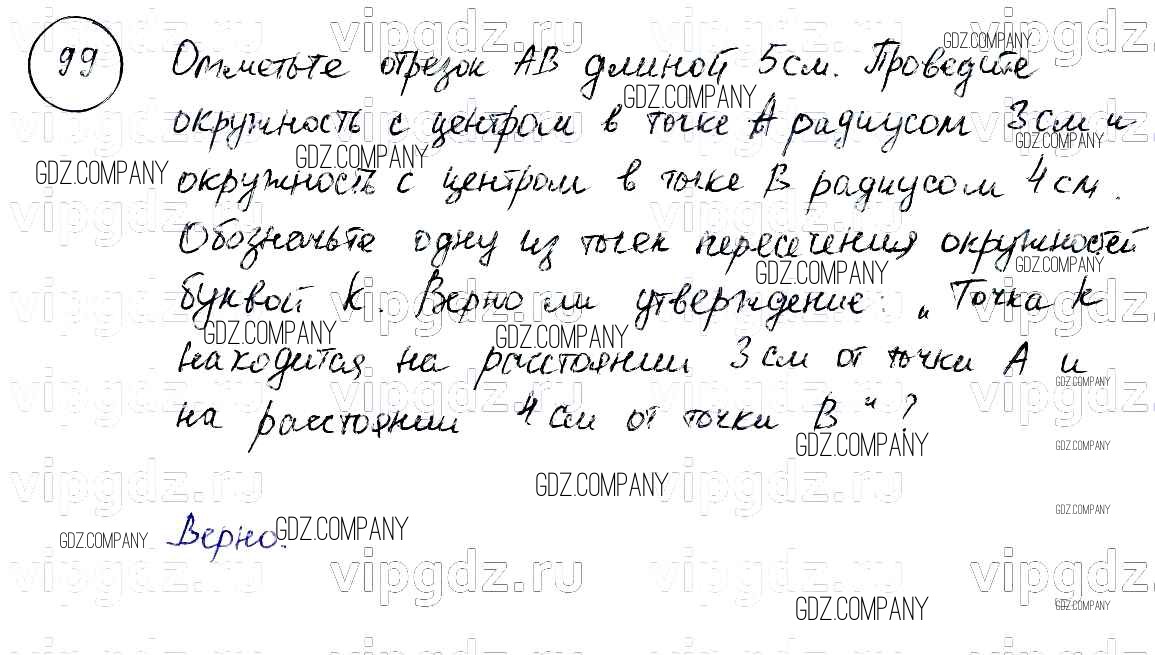 99
Отметьте отрезок AB длиной 5 см. Проведите
окружность с центром в точке A радиусом 3 см и
окружность с центром в точке B радиусом 4 см.
Обозначьте одну из точек пересечения окружностей
буквой K. Верно ли утверждение: „Точка K
находится на расстоянии 3 см от точки A и
на расстоянии 4 см от точки B“?
Верно.
vipgdz.ru
GDZ.COMPANY